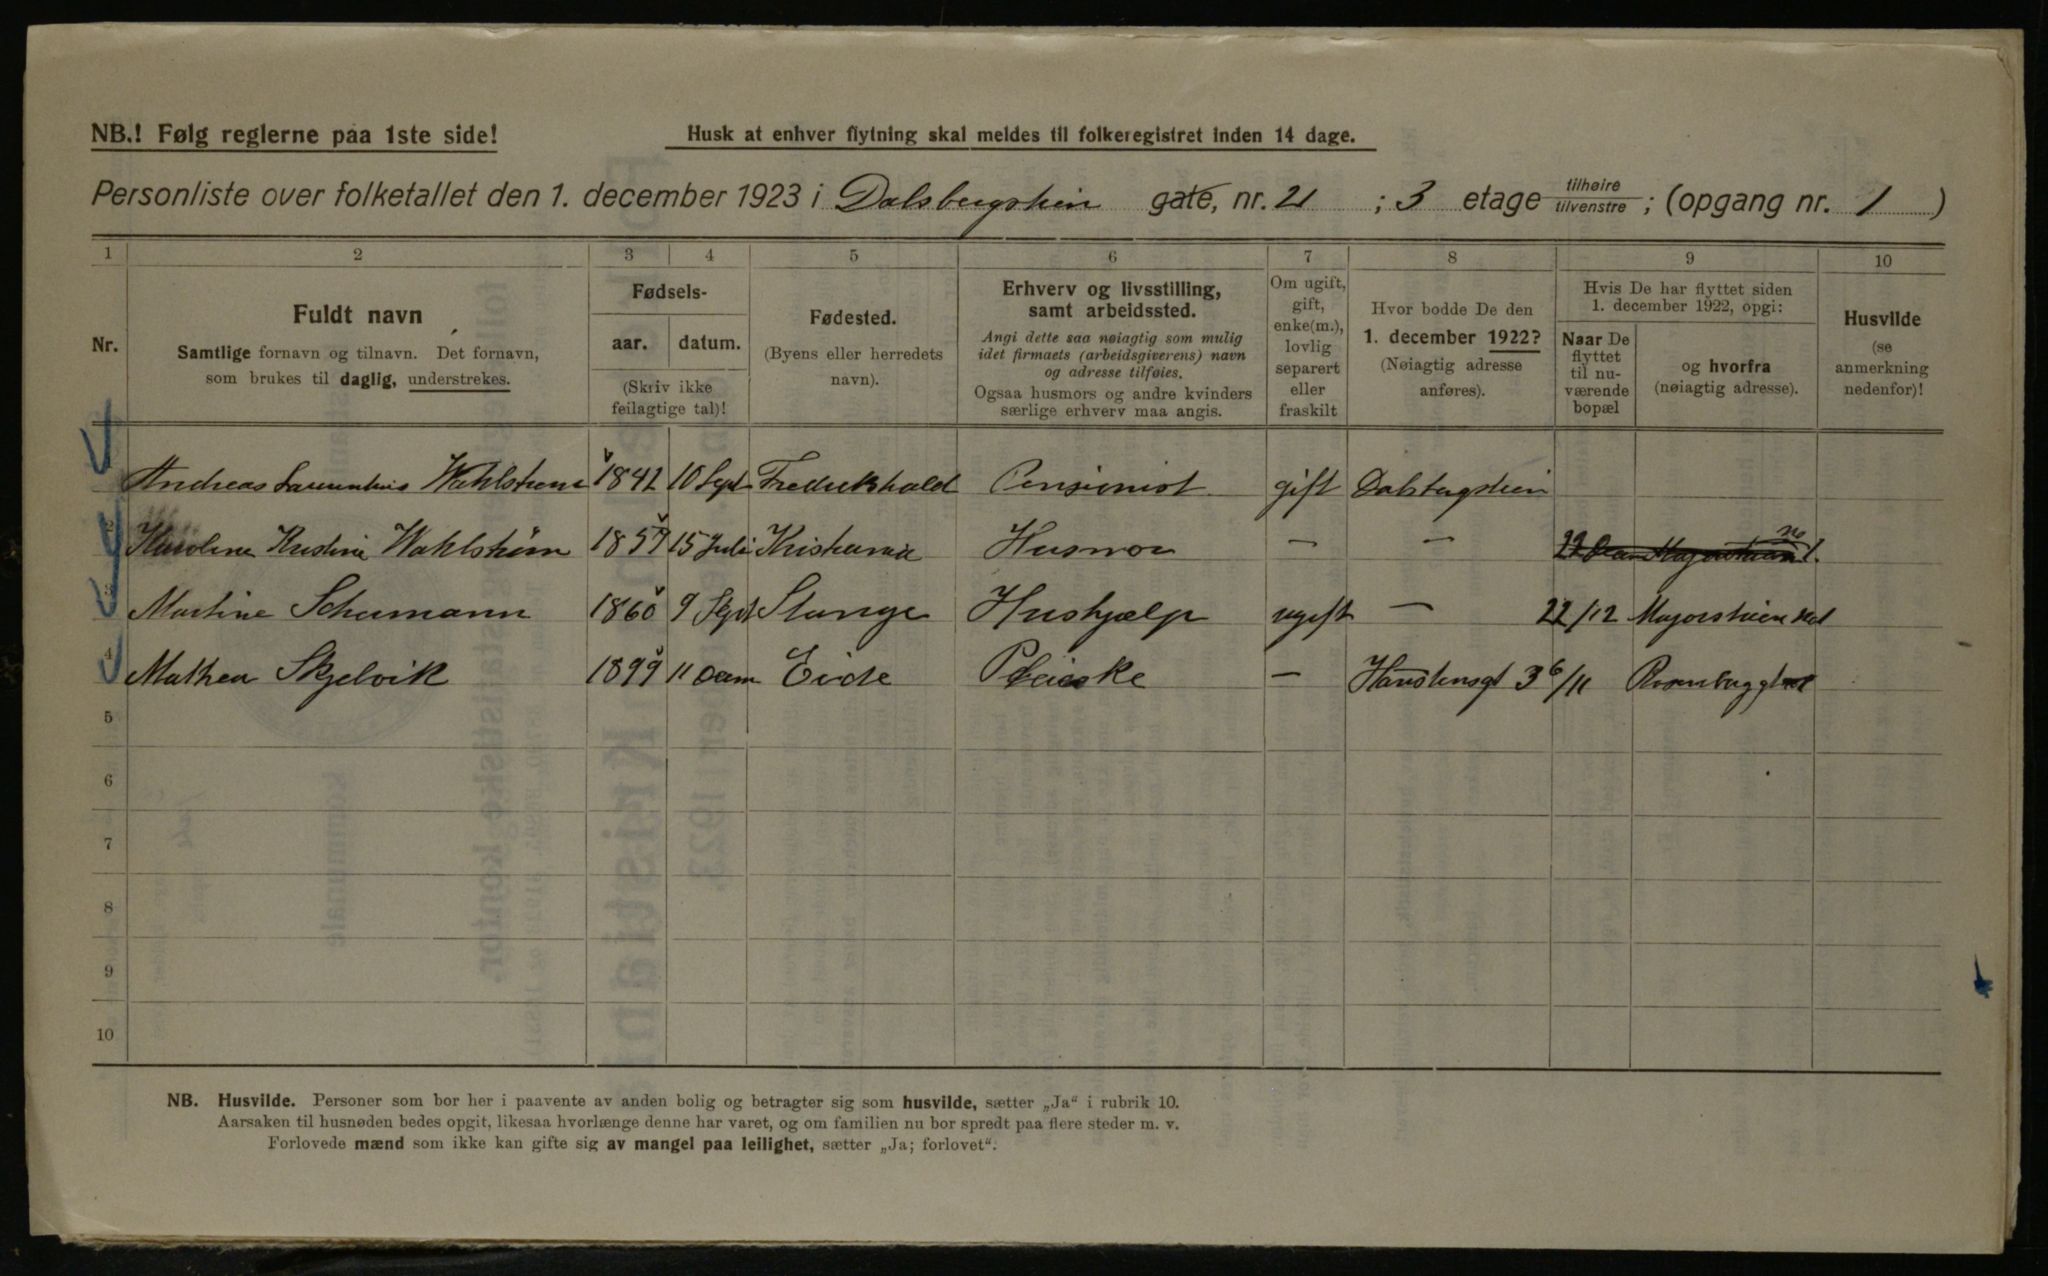 NB.! Følg reglerne paa 1ste side!
Husk at enhver flytning skal meldes til folkeregistret inden 14 dage.
Personliste over folketallet den 1. december 1923 i Dalsbergstien gate, nr. 21 ; 3 etage tilhøire tilvenstre ; (opgang nr. 1 )
1 2 3 4 5 6 7 8 9 10
Nr.
Fuldt navn
Samtlige fornavn og tilnavn. Det fornavn,
som brukes til daglig, understrekes.
Fødsels-
aar. datum.
(Skriv ikke
feilagtige tal)!
Fødested.
(Byens eller herredets
navn).
Erhverv og livsstilling,
samt arbeidssted.
Angi dette saa nøiagtig som mulig
idet firmaets (arbeidsgiverens) navn
og adresse tilføies.
Ogsaa husmors og andre kvinders
særlige erhverv maa angis.
Om ugift,
gift,
enke(m.),
lovlig
separert
eller
fraskilt
Hvor bodde De den
1. december 1922?
(Nøiagtig adresse
anføres).
Hvis De har flyttet siden
1. december 1922, opgi:
Naar De
flyttet
til nu-
værende
bopæl
og hvorfra
(nøiagtig adresse).
Husvilde
(se
anmerkning
nedenfor)!
Andreas Wahlstrøm 1842 10 Sept Fredrikshald Pensionist gift Dalsbergstien
2 Karoline Kristine Wahlstrøm 1857 15 Juli Kristiania Husmor — —
3 Martine Schumann 1860 9 Sept Stange Hushjælp ugift — 22/12 Majorstuen
4 Mathea Skjelvik 1899 11 Eide — 3 6/11
5
6
7
8
9
10
NB. Husvilde. Personer som bor her i paavente av anden bolig og betragter sig som husvilde, sætter „Ja“ i rubrik 10.
Aarsaken til husnøden bedes opgit, likesaa hvorlænge denne har varet, og om familien nu bor spredt paa flere steder m. v.
Forlovede mænd som ikke kan gifte sig av mangel paa leilighet, sætter „Ja; forlovet“.